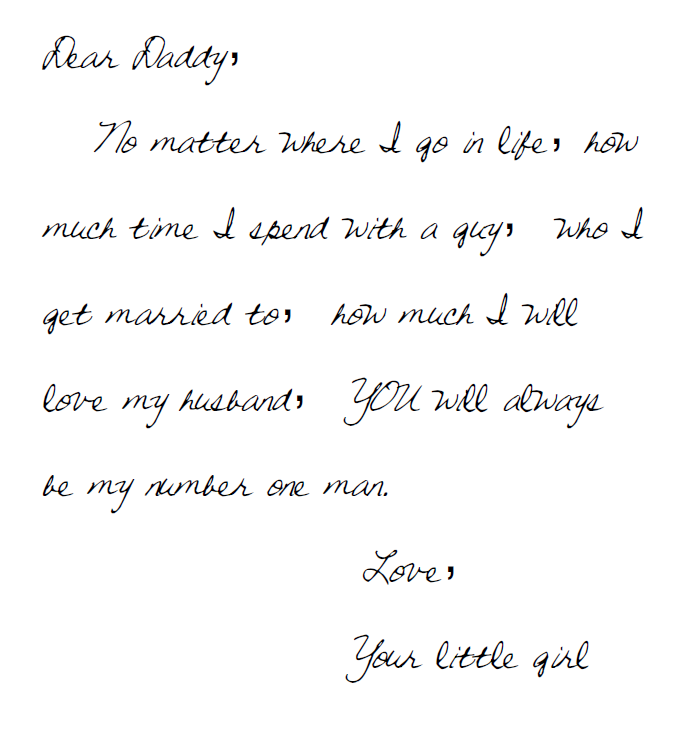 Dear Daddy,
No matter where I go in life, how
much time I spend with a guy, who I
get married to, how much I will
love my husband, YOU will always
be my number one man.
Love,
Your little girl